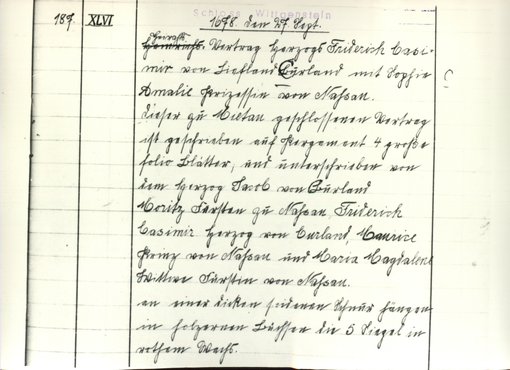 Schloss Wittgenstein
189. XLVI 1678 den 27 Sept.
Heirats
Vertrag Herzogs Friderich Casi-
mir von Liefland Curland mit Sophie
Amalie Prizessin von Nassau.
Dieser zu Mietau geschlossenen Vertrag
ist geschrieben auf Pergament 4 große
folio Blätter, und unterschrieben von
dem Herzog Jacob von Curland
Moritz Fürsten zu Nassau, Friderich
Casimir Herzog von Curland, Maurice
Prinz von Nassau und Maria Magdalena
Wittwe Fürstin von Nassau.
an einer dicken seidenen Schnur hängen
in holzernen Büchsen die 5 Siegel in
rothem Wachs.